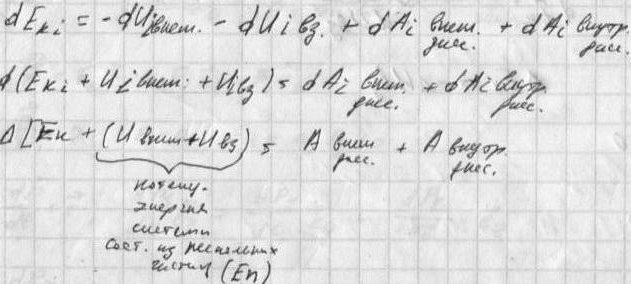 dEкi = -dUiвнеш. - dUiвз. + dAi внеш. дисс. + dAi внутр. дисс.
d(Eкi + Uiвнеш. + Uiвз) = dAi внеш. дисс. + dAi внутр. дисс.
Δ[Eк + (Uвнеш + Uвз) = A внеш дисс. + A внутр. дисс.
потенц.
энергия
системы
сост. из нескольких
частиц (Eп)